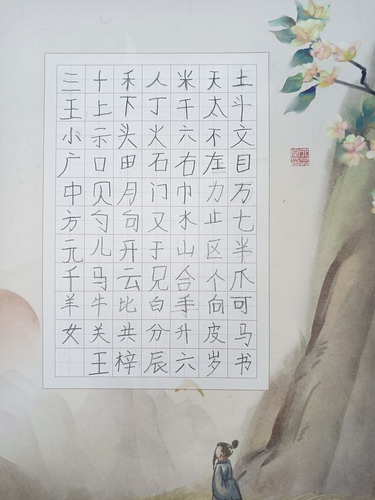 三十禾人米天土
王上下丁干太斗
小示头火六不文
广口田石右左目
中贝月门巾力万
方勺句又水止七
元儿开于山区半
千马云兄合个爪
羊牛比白手向可
女关共分升皮马
王梓辰六岁书